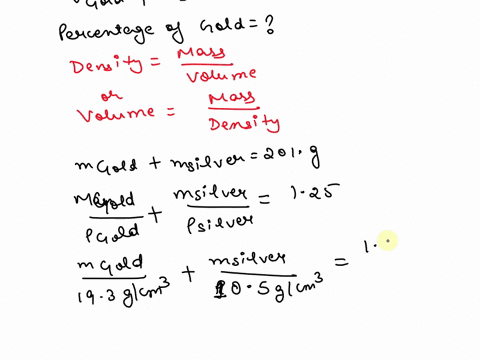 Percentage of Gold = ?
Density = Mass / Volume
or
Volume = Mass / Density
mGold + msilver = 201. g
mGold / ρGold + msilver / ρsilver = 1.25
mGold / 19.3 g/cm³ + msilver / 10.5 g/cm³ = 1.